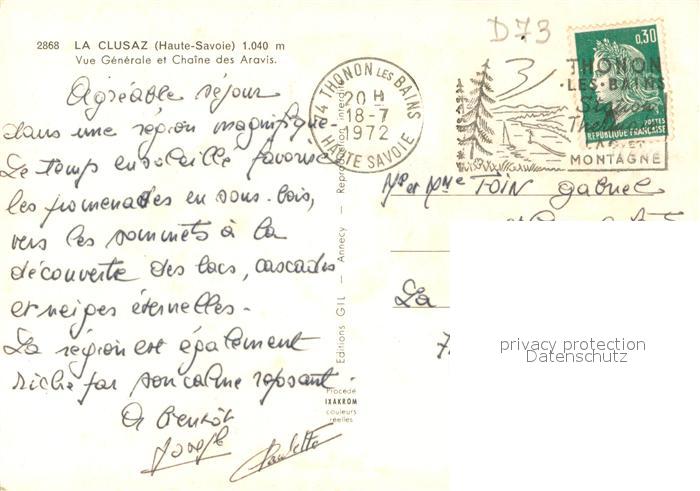 2868 LA CLUSAZ (Haute-Savoie) 1.040 m
Vue Générale et Chaîne des Aravis.
Agréable séjour
dans une région magnifique.
Le temps ensoleillé favorise
les promenades en sous-bois,
vers les sommets à la
découverte des lacs, cascades
et neiges éternelles.
La région est également
riche par son calme reposant.
A bientôt
Joseph
Paulette
Editions GIL - Annecy - Reproduction interdite
Procédé
IXAKROM
couleurs
réelles
D73
74 THONON LES BAINS
20H
18-7
1972
HAUTE SAVOIE
THONON
-LES-BAINS
LAC ET
MONTAGNE
0,30
POSTES
REPUBLIQUE FRANÇAISE
Mr et Mme TOIN Gabriel
La
7
privacy protection
Datenschutz